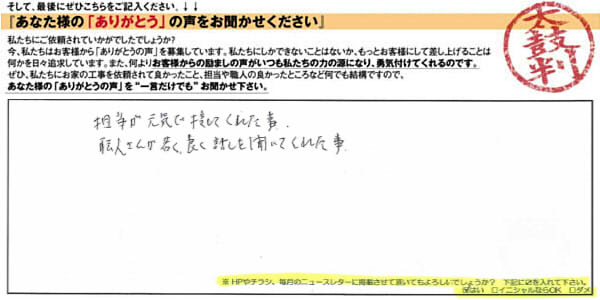 そして、最後にぜひこちらをご記入ください．↓↓
『あなた様の「ありがとう」の声をお聞かせください』
私たちにご依頼されていかがでしたでしょうか?
今、私たちはお客様から「ありがとうの声」を募集しています。私たちにしかできないことはないか、もっとお客様にして差し上げることは
何かを日々追求しています。また、何よりお客様からの励ましの声がいつも私たちの力の源になり、勇気付けてくれるのです。
ぜひ、私たちにお家の工事を依頼されて良かったこと、担当や職人の良かったところなど何でも結構ですので、
あなた様の「ありがとうの声」を“一言だけでも”お聞かせ下さい。
太鼓判
担当が元気で接してくれた事.
職人さんが若く、良く話しを聞いてくれた事
※HPやチラシ、毎月のニュースレターに掲載させて頂いてもよろしいでしょうか? 下記に☑を入れて下さい。
☑はい □イニシャルならOK □ダメ